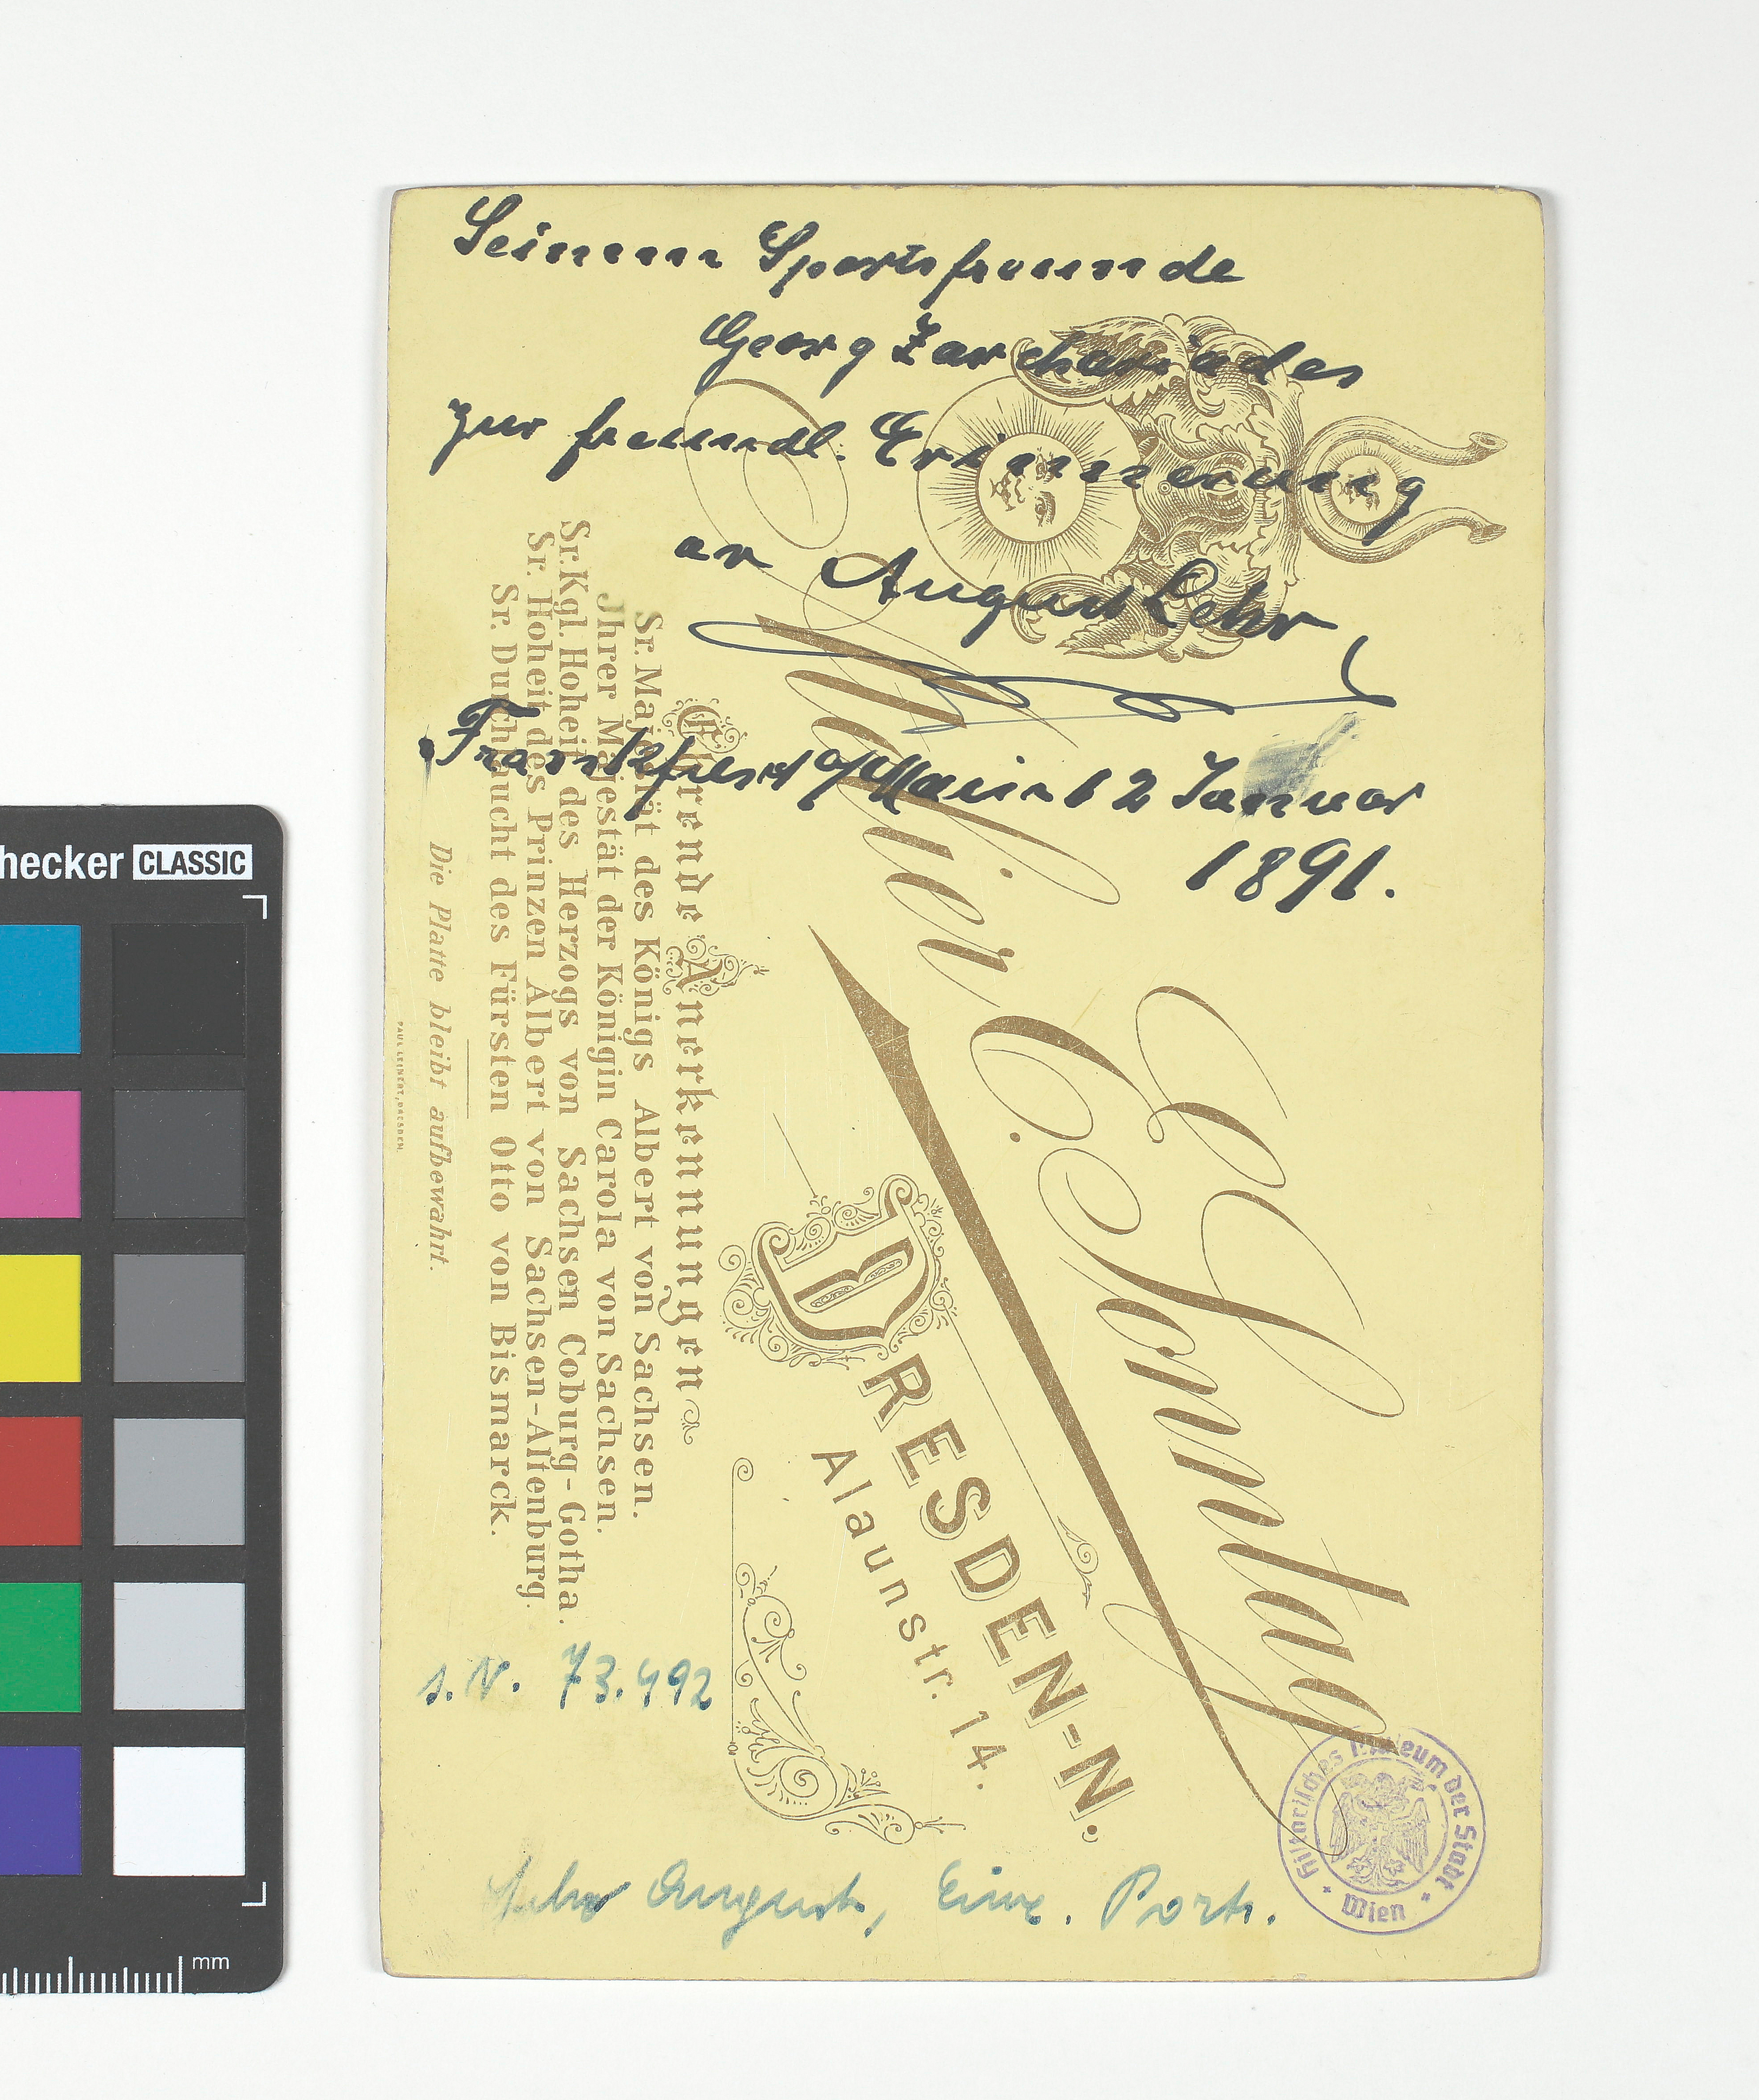 Seinem Sportsfreunde
Georg Zarchariades
zur freundl. Erinnerung
an August Lehr
Frankfurt a/Main 12 Januar
1891.
Atelier E. Sonntag
DRESDEN-N.
Alaunstr. 14.
Ehrende Anerkennungen
Sr. Majestät des Königs Albert von Sachsen.
Jhrer Majestät der Königin Carola von Sachsen.
Sr. Kgl. Hoheit des Herzogs von Sachsen Coburg-Gotha.
Sr. Hoheit des Prinzen Albert von Sachsen-Altenburg.
Sr. Durchlaucht des Fürsten Otto von Bismarck.
Die Platte bleibt aufbewahrt.
PAUL LEINERT, DRESDEN.
s. N. 73.492
Lehr August, Einz. Portr.
Historisches Museum der Stadt Wien
hecker CLASSIC
mm